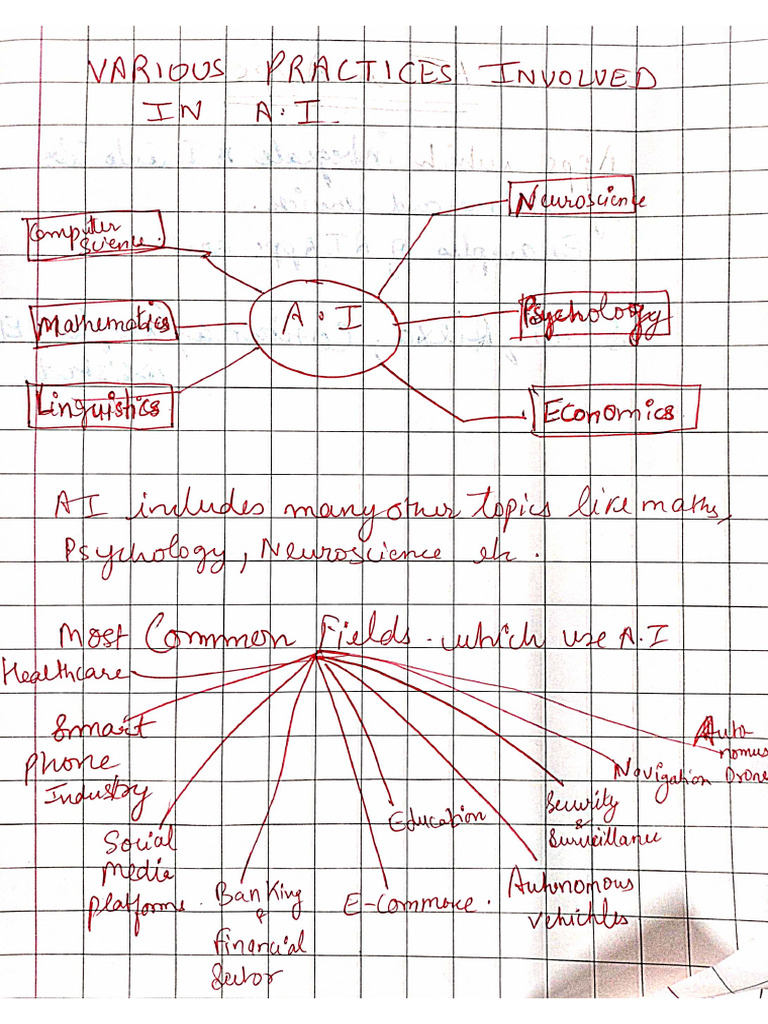 VARIOUS PRACTICES INVOLVED
IN A.I.
Neuroscience
Computer
Science.
A.I
Psychology
Mathematics
Linguistics
Economics
AI includes many other topics like maths,
Psychology, Neuroscience etc.
Most Common Fields. which use A.I
Healthcare
Smart
phone
Industry
Social
media
platforms.
Banking
&
financial
Sector
E-Commerce.
Education
Autonomous
vehichles
Security
&
Surveillance
Navigation
Auto-
nomus
Drones